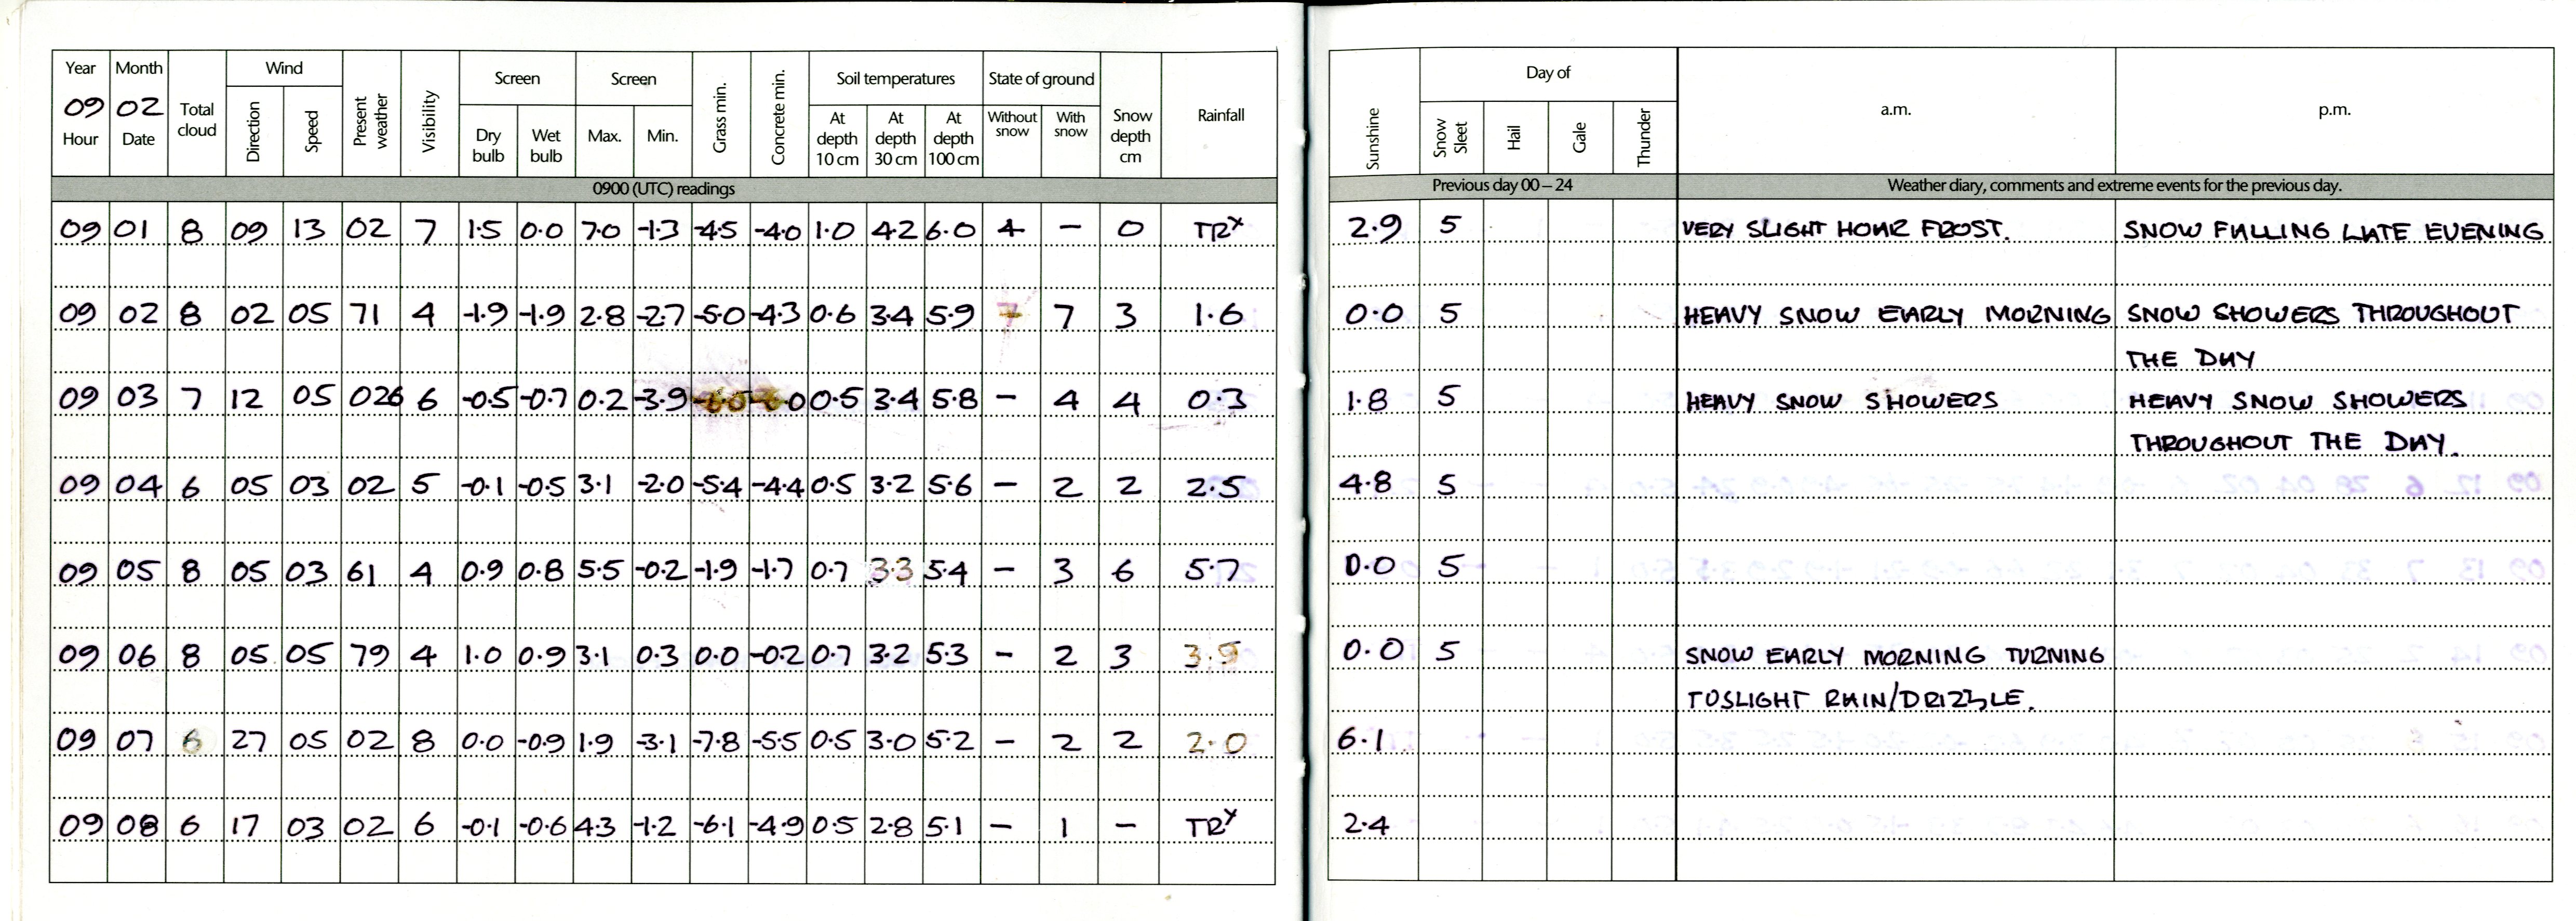 Year Month Total cloud Wind Present weather Visibility Screen Screen Grass min. Concrete min. Soil temperatures State of ground Snow depth cm Rainfall
09 02
Hour Date Direction Speed Dry bulb Wet bulb Max. Min. At depth 10 cm At depth 30 cm At depth 100 cm Without snow With snow
0900 (UTC) readings
09 01 8 09 13 02 7 1.5 0.0 7.0 -1.3 -4.5 -4.0 1.0 4.2 6.0 4 - 0 TRx
09 02 8 02 05 71 4 -1.9 -1.9 2.8 -2.7 -5.0 -4.3 0.6 3.4 5.9 7 3 1.6
09 03 7 12 05 026 6 -0.5 -0.7 0.2 -3.9 0.5 3.4 5.8 - 4 4 0.3
09 04 6 05 03 02 5 -0.1 -0.5 3.1 -2.0 -5.4 -4.4 0.5 3.2 5.6 - 2 2 2.5
09 05 8 05 03 61 4 0.9 0.8 5.5 -0.2 -1.9 -1.7 0.7 3.3 5.4 - 3 6 5.7
09 06 8 05 05 79 4 1.0 0.9 3.1 0.3 0.0 -0.2 0.7 3.2 5.3 - 2 3 3.9
09 07 6 27 05 02 8 0.0 -0.9 1.9 -3.1 -7.8 -5.5 0.5 3.0 5.2 - 2 2 2.0
09 08 6 17 03 02 6 -0.1 -0.6 4.3 -1.2 -6.1 -4.9 0.5 2.8 5.1 - 1 - TRx
Sunshine Day of a.m. p.m.
Snow Sleet Hail Gale Thunder
Previous day 00 – 24 Weather diary, comments and extreme events for the previous day.
2.9 5 VERY SLIGHT HOAR FROST. SNOW FALLING LATE EVENING
0.0 5 HEAVY SNOW EARLY MORNING SNOW SHOWERS THROUGHOUT
THE DAY
1.8 5 HEAVY SNOW SHOWERS HEAVY SNOW SHOWERS
THROUGHOUT THE DAY.
4.8 5
0.0 5
0.0 5 SNOW EARLY MORNING TURNING
TOSLIGHT RAIN/DRIZZLE.
6.1
2.4